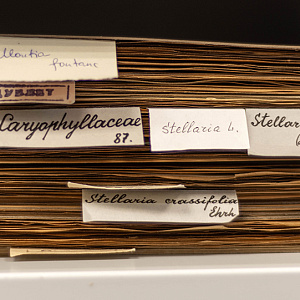 Montia
fontana
Caryophyllaceae
87.
Stellaria L.
Stellar
Stellaria crassifolia
Ehrh